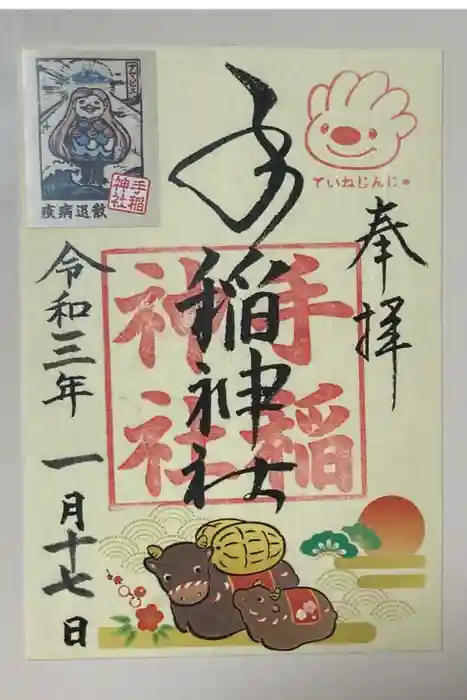 奉拝
手稲神社
令和三年
一月十七日
手稲
神社
ていねじんじゃ
アマビエ
疫病退散
手稲
神社